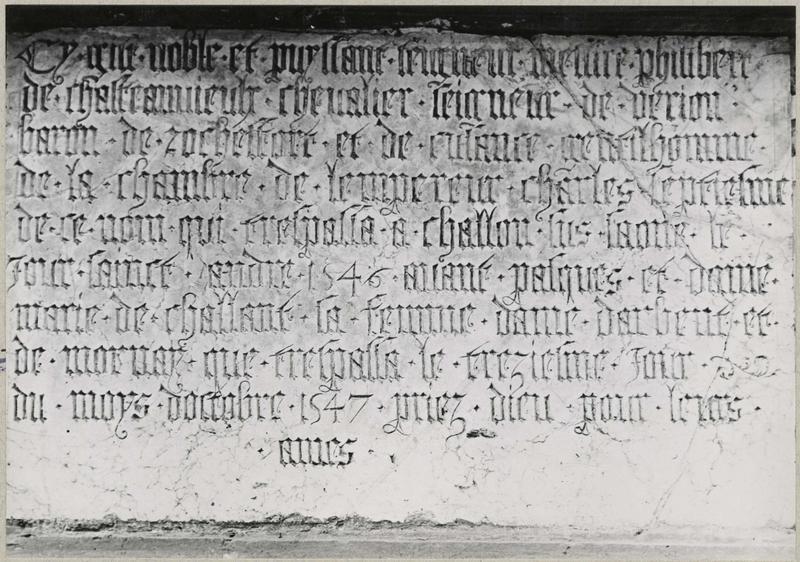 Cy · gist · noble · et · puyssant · seigneur · messire · philibert
de · chasteauvieulx · chevalier · seigneur · de · verion
baron · de · rocheffort · et · de · cusance · gentilhomme ·
de · la · chambre · de · lempereur · charles · septiesme
de · ce · nom · qui · trespassa · a · challon · sus · saone · le ·
Jour · sainct · andre · 1546 · avant · pasques · et · dame ·
marie · de · challant · sa · femme · dame · darbent · et ·
de · mornay · que · trespassa · le · treziesme · Jour ·
du · moys · doctobre · 1547 · priez · dieu · pour · leurs ·
· ames ·